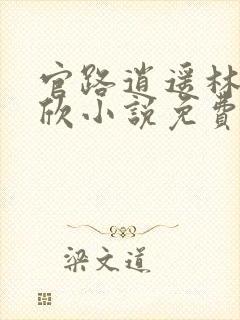 官路逍遥林
欣小説免費
梁文道